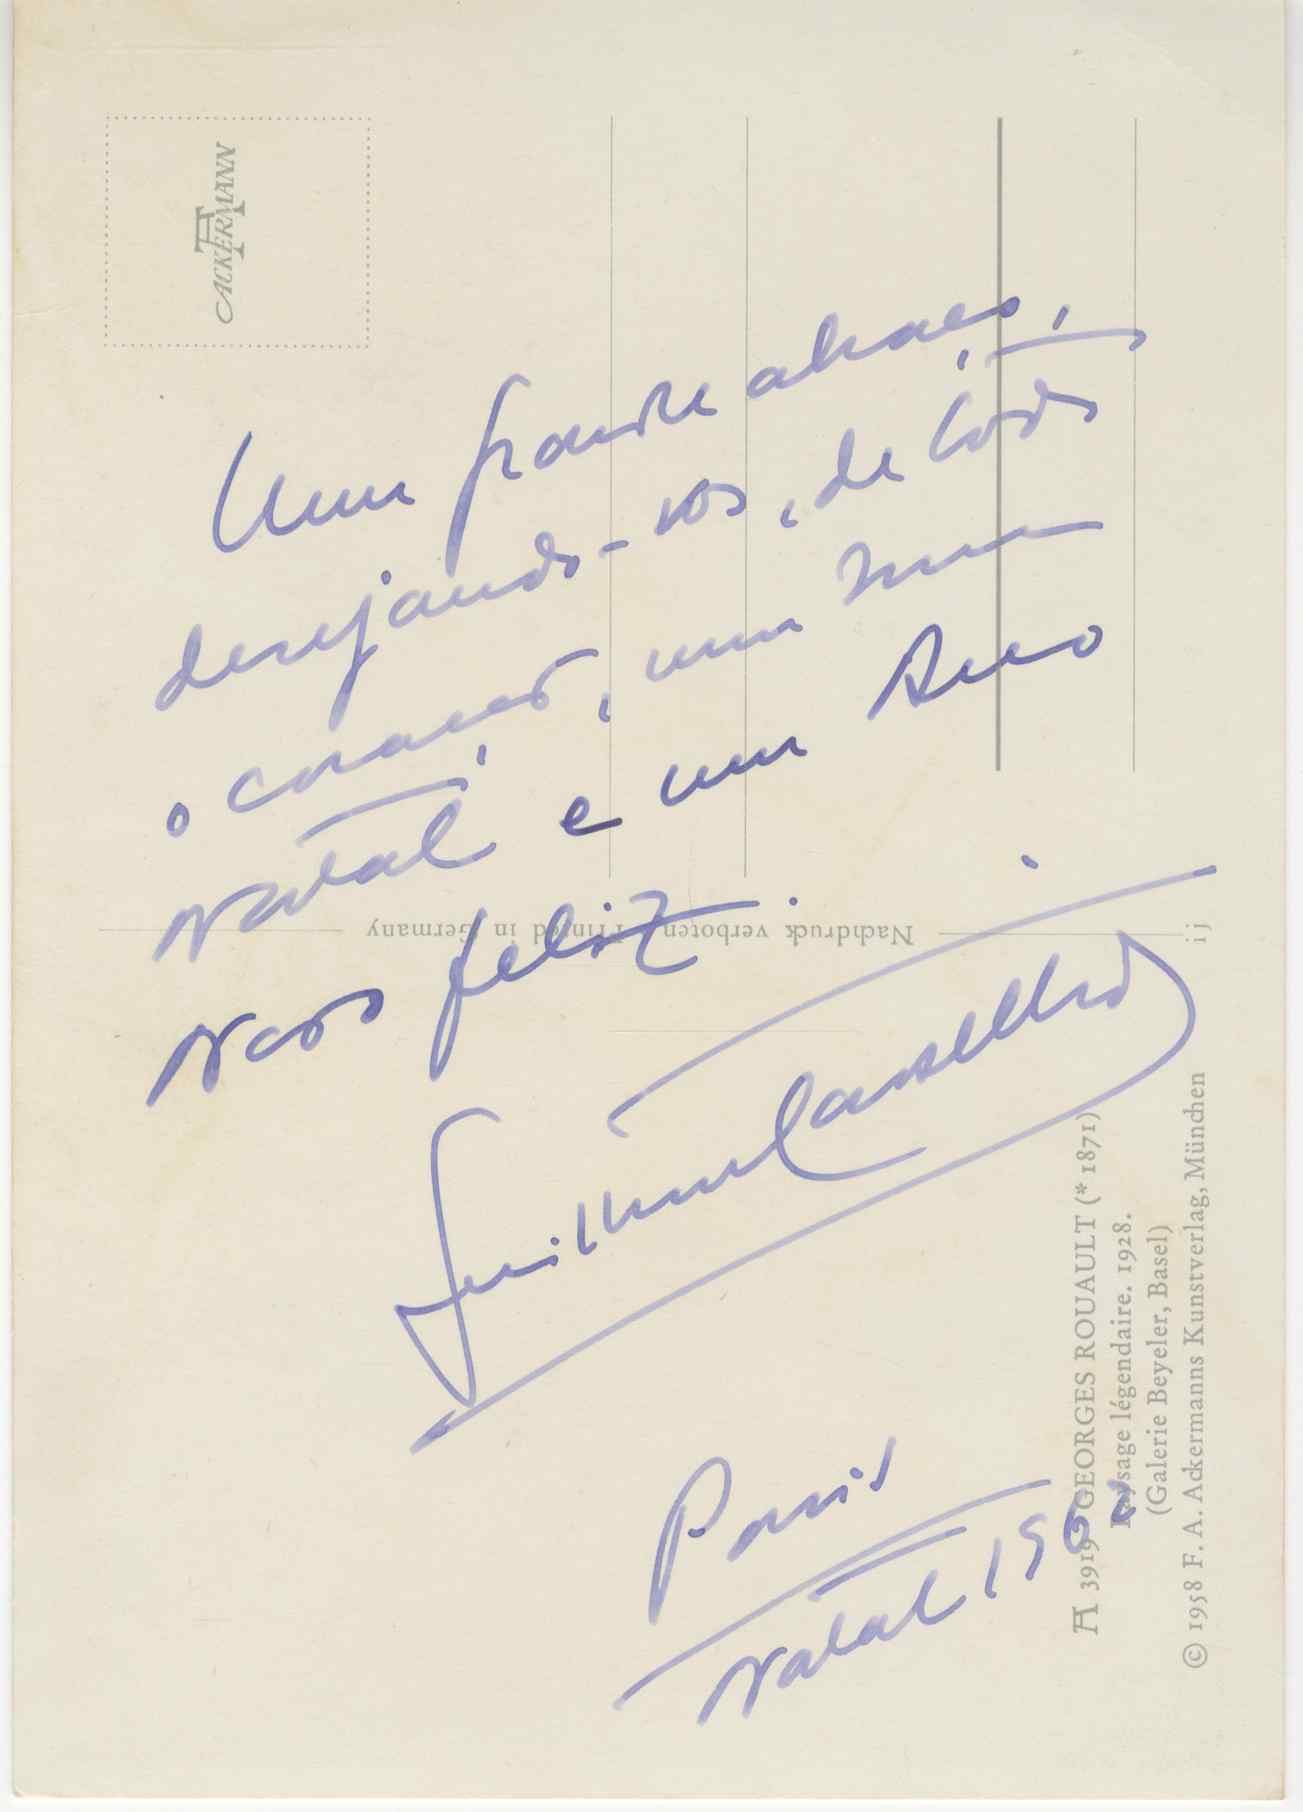 Um grande abraço,
desejando-vos, de todo
o coração, um
Natal e um Ano
Novo feliz.
Guilherme
Paris
Natal 196
ACKERMANN
Nachdruck verboten Printed in Germany
ij
A 3919 GEORGES ROUAULT (* 1871)
Paysage légendaire. 1928.
(Galerie Beyeler, Basel)
© 1958 F. A. Ackermanns Kunstverlag, München